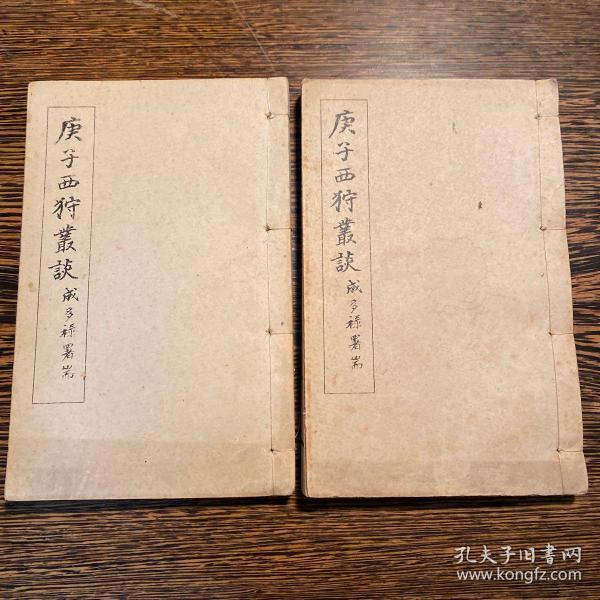 庚子西狩叢談 成多祿署耑
庚子西狩叢談 成多祿署耑
孔夫子旧書网
www.kongfz.com